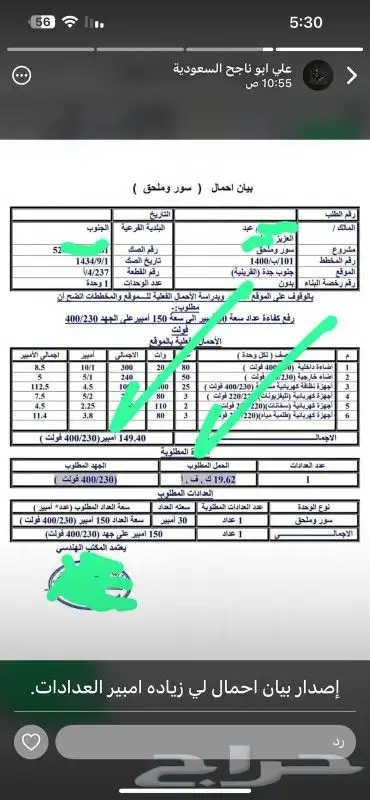 5:30
56
علي ابو ناجح السعودية
10:55 ص
بيان احمال ( سور وملحق )
رقم الطلب التاريخ
المالك / عبد العزيز البلدية الفرعية الجنوب
مشروع سور وملحق رقم الصك
رقم المخطط 101/ب/1400 تاريخ الصك 1434/9/1
الموقع جنوب جدة (القرينية) رقم القطعة 237/أ
رقم رخصة البناء بدون عدد الوحدات 1 وحدة
بالوقوف على الموقع وبدراسة الأحمال الفعلية للموقع والمخططات اتضح أن
مطلوب:-
رفع كفاءة عداد سعة أمبير الى سعة 150 أمبير على الجهد 400/230
فولت
الأحمال الفعلية بالموقع
م صف ( لكل وحدة ) وات الاجمالي أمبير اجمالي الأمبير
1 اضاءة داخلية ( فولت 80 20 300 10/1 8.5
2 اضاءه خارجية 50 240 5/1
3 أجهزة نظافة كهربائية (400/230 فولت) 25 4.5 112.5
4 أجهزة كهربائية (تليفزيونات) 3 80 5/2 7.5
5 أجهزة كهربائية (سخانات) فولت 2 110 2.25 4.5
6 أجهزة كهربائية (طلمبة مياه) فولت 3 80 3.8 11.4
149.40 امبير(400/230 فولت )
المطلوبة
عدد العدادات الحمل المطلوب الجهد المطلوب
1 19.62 ك . ف . أ (400/230 فولت )
العدادات المطلوب
نوع الوحدة عدد العدادات المطلوبة سعته العداد سعة العداد المطلوب (عدد* أمبير)
سور وملحق 1 عداد 30 أمبير سعة العداد 150 أمبير (400/230 فولت)
الاجمالـــــي 1 عداد 150 امبير على جهد (400/230 فولت)
يعتمد المكتب الهندسي
إصدار بيان احمال لي زياده امبير العدادات.
رد
حراج